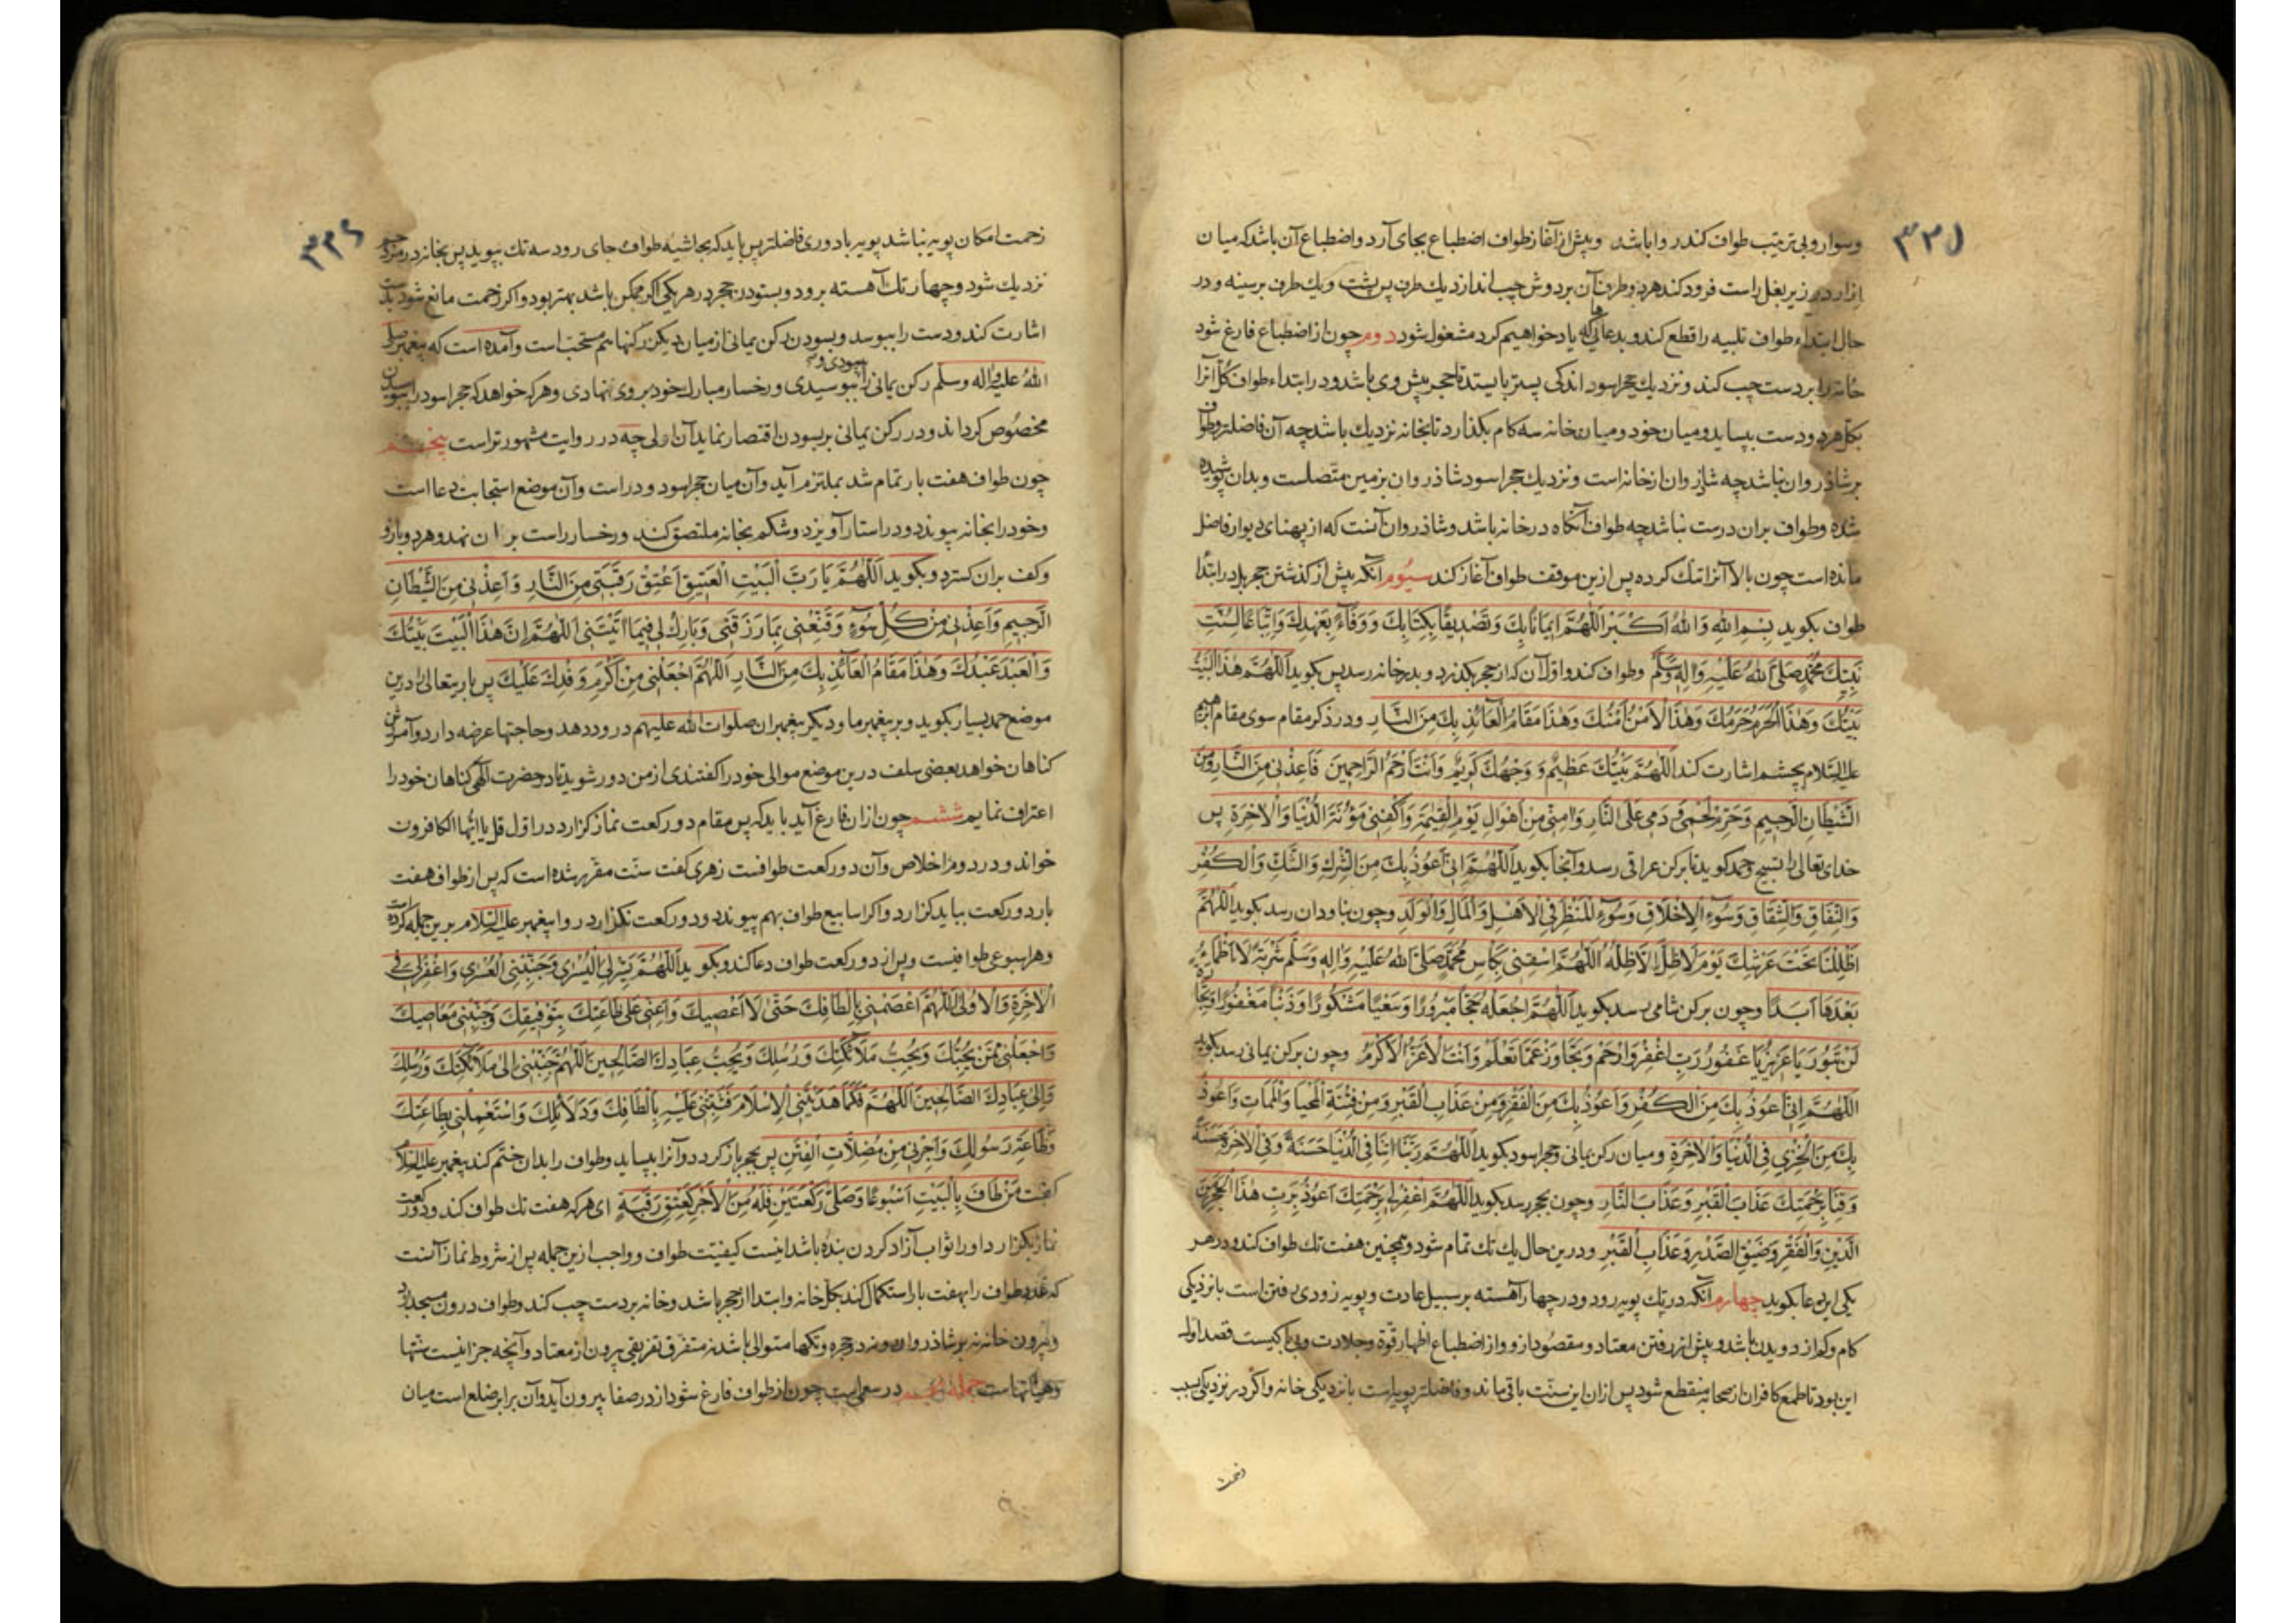 ۳۳۱
وسوار وبی ترتیب طواف کند روا باشد وپیش از آغاز طواف اضطباع بجای آرد واضطباع آن باشد که میان
ازار در زیر بغل راست فرود کند هر دو طرف آن بر دوش چپ اندازد یك طرف پس پشت ویك طرف بر سینه ودر
حال ابتداء طواف تلبیه را قطع کند وبدعاهائی که یاد خواهیم کرد مشغول شود دوم چون از اضطباع فارغ شود
خانه را بر دست چپ کند ونزدیك حجر اسود اندکی پستر بایستد تا حجر پیش وی باشد ودر ابتداء طواف کل آنرا
بکل هر دو دست بپساید ومیان خود ومیان خانه سه کام بگذارد تا بخانه نزدیك باشد چه آن فاضلتر وطواف
بر شاذروان نباشد چه شاذروان از خانه است ونزدیك حجر اسود شاذروان بزمین متصلست وبدان پوشیده
شده وطواف بران درست نباشد چه طواف آنگاه در خانه باشد وشاذروان آنست که از پهنای دیوار فاضل
مانده است چون بالا آنرا تنك کرده پس ازین موقف طواف آغاز کند سیوم آنکه پیش از گذشتن حجر باید در ابتدا
طواف بگوید بِسْمِ اللهِ وَاللهُ اَكْبَرُ اَللّٰهُمَّ اِيمَانًا بِكَ وَتَصْدِيقًا بِكِتَابِكَ وَوَفَآءً بِعَهْدِكَ وَاتِّبَاعًا لِسُنَّتِ
نَبِيِّكَ مُحَمَّدٍ صَلَّى اللهُ عَلَيْهِ وَاٰلِهٖ وَسَلَّمَ وطواف کند واول آن که از حجر بگذرد وبدر خانه رسد پس بگوید اَللّٰهُمَّ هٰذَا الْبَيْتُ
بَيْتُكَ وَهٰذَا الْحَرَمُ حَرَمُكَ وَهٰذَا الْاَمْنُ اَمْنُكَ وَهٰذَا مَقَامُ الْعَآئِذِ بِكَ مِنَ النَّارِ ودر ذکر مقام سوی مقام ابرهیم
علیه السلام بچشم اشارت کند اَللّٰهُمَّ بَيْتُكَ عَظِيمٌ وَوَجْهُكَ كَرِيمٌ وَاَنْتَ اَرْحَمُ الرَّاحِمِينَ فَاَعِذْنِي مِنَ النَّارِ وَمِنَ
الشَّيْطَانِ الرَّجِيمِ وَحَرِّمْ لَحْمِي وَدَمِي عَلَى النَّارِ وَاٰمِنِّي مِنْ اَهْوَالِ يَوْمِ الْقِيٰمَةِ وَاكْفِنِي مَؤُنَةَ الدُّنْيَا وَالْاٰخِرَةِ پس
خدای تعالی را تسبیح وحمد گوید تا برکن عراقی رسد وآنجا بگوید اَللّٰهُمَّ اِنِّي اَعُوذُ بِكَ مِنَ الشِّرْكِ وَالشَّكِّ وَالْكُفْرِ
وَالنِّفَاقِ وَالشِّقَاقِ وَسُوٓءِ الْاَخْلَاقِ وَسُوٓءِ الْمَنْظَرِ فِي الْاَهْلِ وَالْمَالِ وَالْوَلَدِ وچون بناودان رسد بگوید اَللّٰهُمَّ
اَظِلَّنَا تَحْتَ عَرْشِكَ يَوْمَ لَا ظِلَّ اِلَّا ظِلُّهُ اَللّٰهُمَّ اسْقِنِي بِكَاْسِ مُحَمَّدٍ صَلَّى اللهُ عَلَيْهِ وَاٰلِهٖ وَسَلَّمَ شَرْبَةً لَا اَظْمَاُ
بَعْدَهَا اَبَدًا وچون برکن شامی رسد بگوید اَللّٰهُمَّ اجْعَلْهُ حَجًّا مَبْرُورًا وَسَعْيًا مَشْكُورًا وَذَنْبًا مَغْفُورًا وَتِجَارَةً
لَنْ تَبُورَ يَا عَزِيزُ يَا غَفُورُ رَبِّ اغْفِرْ وَارْحَمْ وَتَجَاوَزْ عَمَّا تَعْلَمُ وَاَنْتَ الْاَعَزُّ الْاَكْرَمُ وچون برکن یمانی رسد بگوید
اَللّٰهُمَّ اِنِّي اَعُوذُ بِكَ مِنَ الْكُفْرِ وَاَعُوذُ بِكَ مِنَ الْفَقْرِ وَمِنْ عَذَابِ الْقَبْرِ وَمِنْ فِتْنَةِ الْمَحْيَا وَالْمَمَاتِ وَاَعُوذُ
بِكَ مِنَ الْخِزْيِ فِي الدُّنْيَا وَالْاٰخِرَةِ ومیان رکن یمانی وحجر اسود بگوید اَللّٰهُمَّ رَبَّنَا اٰتِنَا فِي الدُّنْيَا حَسَنَةً وَفِي الْاٰخِرَةِ حَسَنَةً
وَقِنَا بِرَحْمَتِكَ عَذَابَ الْقَبْرِ وَعَذَابَ النَّارِ وچون بحجر رسد بگوید اَللّٰهُمَّ اغْفِرْ لِي بِرَحْمَتِكَ اَعُوذُ بِرَبِّ هٰذَا الْحَجَرِ مِنَ
الدَّيْنِ وَالْفَقْرِ وَضِيقِ الصَّدْرِ وَعَذَابِ الْقَبْرِ ودرین حال یك تك تمام شود وهمچنین هفت تك طواف کند ودر هر
یکی این دعا بگوید چهارم آنکه در سه تك پویه رود ودر چهار آهسته بر سبیل عادت وپویه زودی رفتن است با نزدیکی
کام وکم از دویدن باشد وبیش از رفتن معتاد ومقصود ازو واز اضطباع اظهار قوة وجلادت وبی باکیست قصد اول
این بود تا طمع کافران از صحابه منقطع شود پس ازان این سنت باقی ماند وفاضلتر پویه است با نزدیکی خانه واگر در نزدیکی بسبب
زحمت
۳۳۲
زحمت امکان پویه نباشد پویه با دوری فاضلتر پس باید که بحاشیه طواف جای رود سه تك بپوید پس بخانه در مزدحم
نزدیك شود وچهار تك آهسته برود وبسودن حجر در هر یکی اگر ممکن باشد بهتر بود واگر زحمت مانع شود بدست
اشارت کند ودست را ببوسد وبسودن رکن یمانی از میان دیگر رکنها هم مستحب است وآمده است که پیغمبر صلی
الله علیه واله وسلم رکن یمانی را بسودی و ببوسیدی ورخسار مبارك خود بروی نهادی وهر که خواهد که حجر اسود را ببوسیدن
مخصوص گرداند ودر رکن یمانی بر بسودن اقتصار نماید آن اولی چه در روایت مشهورتر است پنجم
چون طواف هفت بار تمام شد بملتزم آید وآن میان حجر اسود ودر است وآن موضع استجابت دعا است
وخود را بخانه پیوندد ودر استار آویزد وشکم بخانه ملتصق کند ورخسار راست بران نهد وهر دو بازو
وکف بران گسترد وبگوید اَللّٰهُمَّ يَا رَبَّ الْبَيْتِ الْعَتِيقِ اَعْتِقْ رَقَبَتِي مِنَ النَّارِ وَاَعِذْنِي مِنَ الشَّيْطَانِ
الرَّجِيمِ وَاَعِذْنِي مِنْ كُلِّ سُوٓءٍ وَقَنِّعْنِي بِمَا رَزَقْتَنِي وَبَارِكْ لِي فِيمَا اٰتَيْتَنِي اَللّٰهُمَّ اِنَّ هٰذَا الْبَيْتَ بَيْتُكَ
وَالْعَبْدَ عَبْدُكَ وَهٰذَا مَقَامُ الْعَآئِذِ بِكَ مِنَ النَّارِ اَللّٰهُمَّ اجْعَلْنِي مِنْ اَكْرَمِ وَفْدِكَ عَلَيْكَ پس باریتعالی را درین
موضع حمد بسیار بگوید وبر پیغمبر ما ودیگر پیغمبران صلوات الله علیهم درود دهد وحاجتها عرضه دارد وآمرزش
گناهان خواهد بعضی سلف درین موضع موالی خود را گفتندی از من دور شوید تا در حضرت الهی گناهان خود را
اعتراف نمایم ششم چون ازان فارغ آید باید که پس مقام دو رکعت نماز گزارد در اول قل یا ایها الکافرون
خواند ودر دوم اخلاص وآن دو رکعت طوافست زهری گفت سنت مقرر شده است که پس از طواف هفت
بار دو رکعت بباید گزارد واگر اسابیع طواف بهم پیوندد ودو رکعت نگزارد روا پیغمبر علیه السلام برین جمله کرده است
وهر اسبوعی طوافیست وپس از دو رکعت طواف دعا کند وبگوید اَللّٰهُمَّ يَسِّرْ لِي الْيُسْرٰى وَجَنِّبْنِي الْعُسْرٰى وَاغْفِرْ لِي فِي
الْاٰخِرَةِ وَالْاُولٰى اَللّٰهُمَّ اعْصِمْنِي بِاَلْطَافِكَ حَتّٰى لَا اَعْصِيكَ وَاَعِنِّي عَلٰى طَاعَتِكَ بِتَوْفِيقِكَ وَجَنِّبْنِي مَعَاصِيكَ
وَاجْعَلْنِي مِمَّنْ يُحِبُّكَ وَيُحِبُّ مَلَآئِكَتَكَ وَرُسُلَكَ وَيُحِبُّ عِبَادَكَ الصَّالِحِينَ اَللّٰهُمَّ حَبِّبْنِي اِلٰى مَلَآئِكَتِكَ وَرُسُلِكَ
وَاِلٰى عِبَادِكَ الصَّالِحِينَ اَللّٰهُمَّ فَكَمَا هَدَيْتَنِي الْاِسْلَامَ فَثَبِّتْنِي عَلَيْهِ بِاَلْطَافِكَ وَدَلَائِلِكَ وَاسْتَعْمِلْنِي بِطَاعَتِكَ
وَطَاعَةِ رَسُولِكَ وَاَجِرْنِي مِنْ مُضِلَّاتِ الْفِتَنِ پس بحجر باز گردد وآنرا بپساید وطواف را بدان ختم کند پیغمبر علیه السلام
گفت مَنْ طَافَ بِالْبَيْتِ اُسْبُوعًا وَصَلّٰى رَكْعَتَيْنِ فَلَهُ مِنَ الْاَجْرِ كَعِتْقِ رَقَبَةٍ ای هر که هفت تك طواف کند ودو رکعت
نماز بگزارد او را ثواب آزاد کردن بنده باشد اینست کیفیت طواف وواجب ازین جمله پس از شروط نماز آنست
که عدد طواف را بهفت بار استکمال کند بکل خانه وابتدا از حجر باشد وخانه بر دست چپ کند وطواف درون مسجد بود
وبیرون خانه نه بر شاذروان ونه در حجره وتکها متوالی باشد نه متفرق تفریقی بیرون از معتاد وآنچه جز اینست سنتها
وهیأتهاست جمله پنجم در سعی است چون از طواف فارغ شود از در صفا بیرون آید وآن برابر ضلع است میان